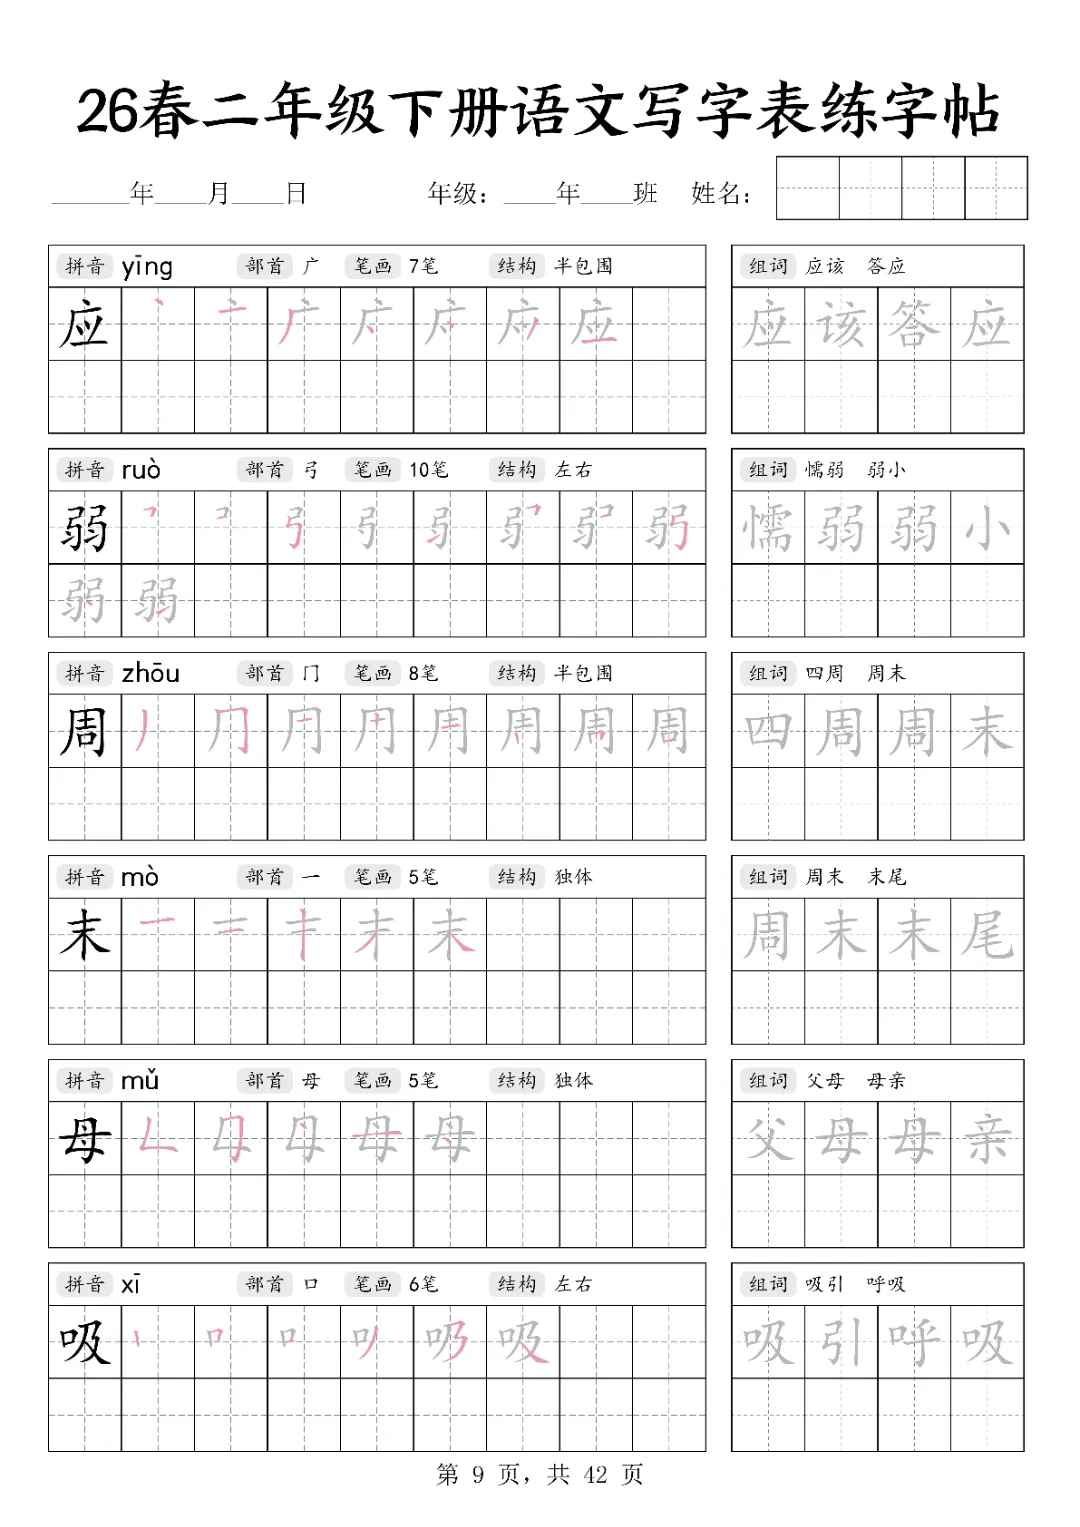 26春二年级下册语文写字表练字帖
______年____月____日 年级：____年____班 姓名：
拼音 yīng 部首 广 笔画 7笔 结构 半包围 组词 应该 答应
应 应 该 答 应
拼音 ruò 部首 弓 笔画 10笔 结构 左右 组词 懦弱 弱小
弱 懦 弱 弱 小
弱 弱
拼音 zhōu 部首 冂 笔画 8笔 结构 半包围 组词 四周 周末
周 四 周 周 末
拼音 mò 部首 一 笔画 5笔 结构 独体 组词 周末 末尾
末 周 末 末 尾
拼音 mǔ 部首 母 笔画 5笔 结构 独体 组词 父母 母亲
母 父 母 母 亲
拼音 xī 部首 口 笔画 6笔 结构 左右 组词 吸引 呼吸
吸 吸 引 呼 吸
第 9 页，共 42 页